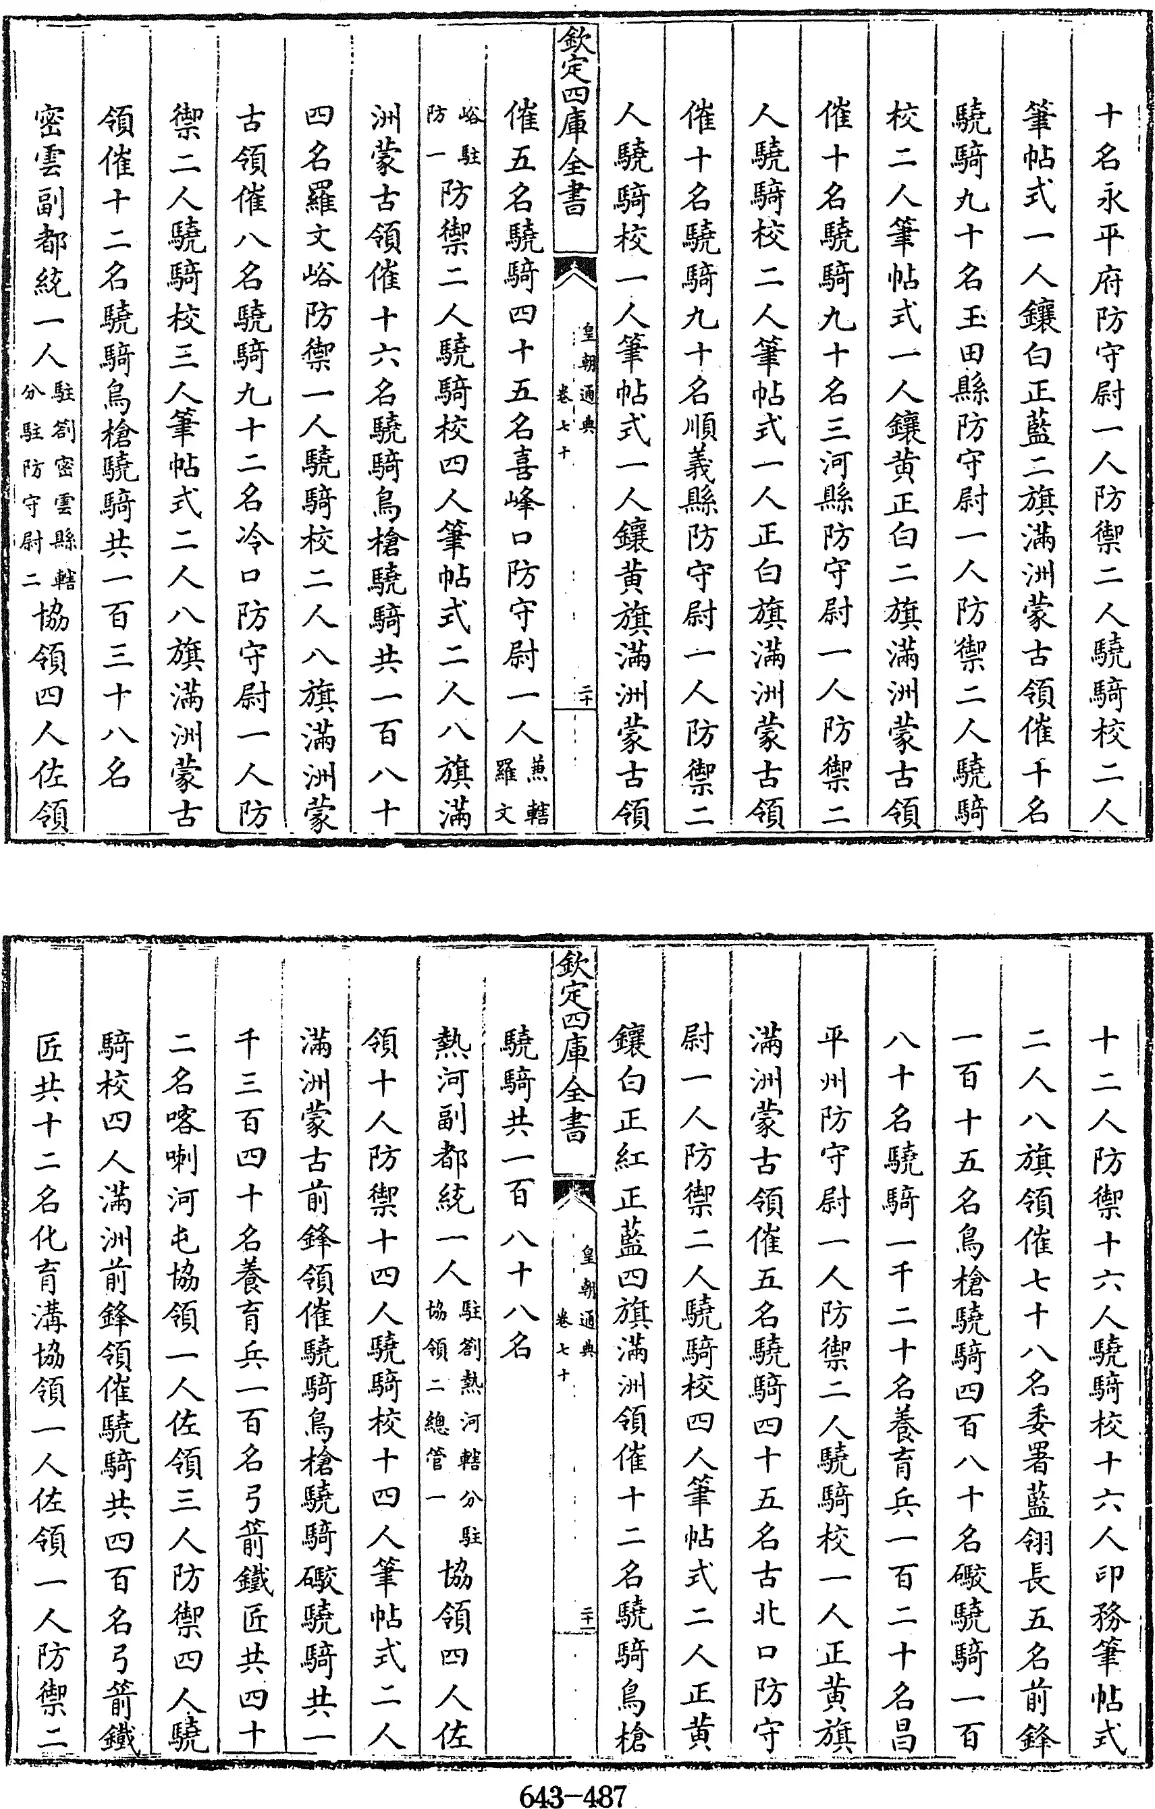 十名永平府防守尉一人防禦二人驍騎校二人
筆帖式一人鑲白正藍二旗滿洲蒙古領催千名
驍騎九十名玉田縣防守尉一人防禦二人驍騎
校二人筆帖式一人鑲黄正白二旗滿洲蒙古領
催十名驍騎九十名三河縣防守尉一人防禦二
人驍騎校二人筆帖式一人正白旗滿洲蒙古領
催十名驍騎九十名順義縣防守尉一人防禦二
人驍騎校一人筆帖式一人鑲黄旗滿洲蒙古領
欽定四庫全書
皇朝通典
卷七十
二十
催五名驍騎四十五名喜峰口防守尉一人兼轄羅文
峪駐防一防禦二人驍騎校四人筆帖式二人八旗滿
洲蒙古領催十六名驍騎鳥槍驍騎共一百八十
四名羅文峪防禦一人驍騎校二人八旗滿洲蒙
古領催八名驍騎九十二名冷口防守尉一人防
禦二人驍騎校三人筆帖式二人八旗滿洲蒙古
領催十二名驍騎鳥槍驍騎共一百三十八名
密雲副都統一人駐劄密雲縣轄分駐防守尉二協領四人佐領
十二人防禦十六人驍騎校十六人印務筆帖式
二人八旗領催七十八名委署藍翎長五名前鋒
一百十五名鳥槍驍騎四百八十名礮驍騎一百
八十名驍騎一千二十名養育兵一百二十名昌
平州防守尉一人防禦二人驍騎校一人正黄旗
滿洲蒙古領催五名驍騎四十五名古北口防守
尉一人防禦二人驍騎校四人筆帖式二人正黄
鑲白正紅正藍四旗滿洲領催十二名驍騎鳥槍
欽定四庫全書
皇朝通典
卷七十
二十一
驍騎共一百八十八名
熱河副都統一人駐劄熱河轄分駐協領二總管一協領四人佐
領十人防禦十四人驍騎校十四人筆帖式二人
滿洲蒙古前鋒領催驍騎鳥槍驍騎礮驍騎共一
千三百四十名養育兵一百名弓箭鐵匠共四十
二名喀喇河屯協領一人佐領三人防禦四人驍
騎校四人滿洲前鋒領催驍騎共四百名弓箭鐵
匠共十二名化育溝協領一人佐領一人防禦二
643-487